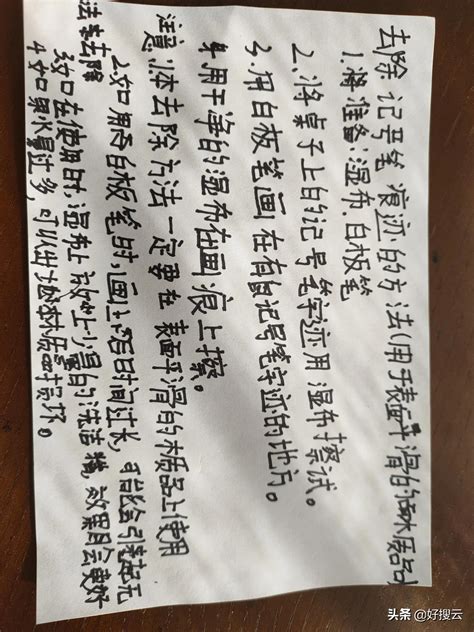 去除记号笔痕迹的方法(用于表面平滑的木质品)
1.将准备:湿布.白板笔
2.将桌子上的记号笔字迹用湿布擦试。
3.用白板笔画在有留记号笔字迹的地方。
4.用干净的湿布在画痕上擦。
注意:1.本去除方法一定要在表面平滑的木质品上使用
2.如用否白板笔时,画上后时间过长,可能会引起无
法去除
3.如在使用时,湿布上放上少量的洗洁精,效果会更好
4.如果水量过多,可以出才木质品损坏。
头条 @好搜云